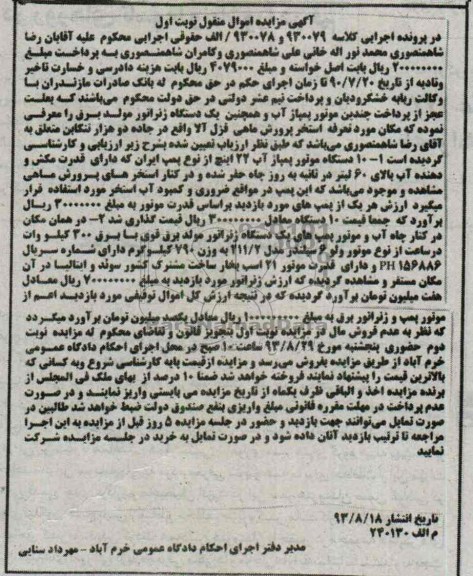 آگهی مزایده اموال منقول نوبت اول
در پرونده اجرایی کلاسه ۹۳۰۰۷۹ و ۹۳۰۰۷۸ / الف حقوقی اجرایی محکوم علیه آقایان رضا
شاهمنصوری محمد نور اله خانی علی شاهمنصوری وکامران شاهمنصوری به پرداخت مبلغ
۲۰۰۰۰۰۰۰۰ ریال بابت اصل خواسته و مبلغ ۴۰۷۹۰۰۰ ریال بابت هزینه دادرسی و خسارت تاخیر
وتادیه از تاریخ ۹۰/۷/۲۰ تا زمان اجرای حکم در حق محکوم له بانک صادرات مازندران با
وکالت ربابه خشگرودیان و پرداخت نیم عشر دولتی در حق دولت محکوم می‌باشند که بعلت
عجز از پرداخت چندین موتور پمپاژ آب و همچنین یک دستگاه ژنراتور مولد برق را معرفی
نموده که مکان مورد تعرفه استخر پرورش ماهی قزل آلا واقع در جاده دو هزار تنکابن متعلق به
آقای رضا شاهمنصوری می‌باشد که طبق نظر ارزیاب تعیین شده بشرح زیر ارزیابی و کارشناسی
گردیده است ۱- ۱۰ دستگاه موتور پمپاژ آب ۲۲ اینچ از نوع پمپ ایران که دارای قدرت مکش و
دهنده آب بالای ۶۰ لیتر در ثانیه به روزه چاه حفر شده و در کنار استخر های پرورش ماهی
مشاهده و موجود می‌باشد که این پمپ در مواقع ضروری و کمبود آب استخر مورد استفاده قرار
میگیرد ارزش هر یک از پمپ های مورد بازدید براساس قدرت موتور به مبلغ ۳۰۰۰۰۰۰۰ ریال
برآورد که جمعا قیمت ۱۰ دستگاه معادل ۳۰۰۰۰۰۰۰۰ ریال قیمت گذاری شد ۲- در همان مکان
در کنار چاه آب و موتور پمپ های یک دستگاه ژنراتور مولد برق قوی با برق ۳۰۰ کیلو وات
درساعت از نوع موتور ولو ۶ سیلندر مدل ۲۱۱/۲ به وزن ۷۹۰ کیلوگرم دارای شماره سریال
PH ۱۵۶۸۸۶ و دارای قدرت موتور ۲۱ اسب بخار ساخت مشترک کشور سوئد و ایتالیا در آن
مکان مستقر و مشاهده گردیده که ارزش ژنراتور مورد بازدید به مبلغ ۷۰۰۰۰۰۰۰۰ ریال معادل
هفت میلیون تومان برآورد گردیده که در نتیجه ارزش کل اموال توقیفی مورد بازدید اعم از
موتور پمپ و ژنراتور برق به مبلغ ۱۰۰۰۰۰۰۰۰۰ ریال معادل یکصد میلیون تومان برآورد میگردد
که نظر به عدم فروش مال در مزایده نوبت اول بتجویز قانون و تقاضای محکوم له مزایده نوبت
دوم حضوری پنجشنبه مورخ ۹۳/۸/۲۹ ساعت ۱۰ صبح در محل اجرای احکام دادگاه عمومی
خرم آباد از طریق مزایده بفروش می‌رسد و مزایده ازقیمت پایه کارشناسی شروع وبه کسانی که
بالاترین قیمت را پیشنهاد نمایند فروخته خواهد شد ضمنا ۱۰ درصد از بهای ملک فی المجلس از
برنده مزایده اخذ و الباقی ظرف یکماه از تاریخ مزایده می بایستی واریز نمایند و در صورت
عدم پرداخت در مهلت مقرره قانونی مبلغ واریزی بنفع صندوق دولت ضبط خواهد شد طالبین در
صورت تمایل می‌توانند جهت بازدید و حضور در جلسه مزایده ۵ روز قبل از مزایده به این اجرا
مراجعه تا ترتیب بازدید آنان داده شود و در صورت تمایل به خرید در جلسه مزایده شرکت
نمایید
تاریخ انتشار ۹۳/۸/۱۸
م الف ۲۴۰۱۳۰
مدیر دفتر اجرای احکام دادگاه عمومی خرم آباد - مهرداد سنایی